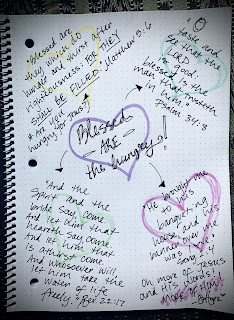 "Blessed are
they which do
hunger and thirst after
righteousness: FOR THEY
SHALL BE FILLED" Matthew 5:6
* Are you
hungry for Jesus?
"O
taste and
see that the
LORD
is good:
blessed is the
man that trusteth
in him."
Psalm 34:8
Blessed
- ARE -
the hungry!
"And the
Spirit and the
bride say, Come.
And let him that
heareth say, Come.
And let him that
is athirst come.
And whosoever will,
let him take the
water of life
freely." Rev. 22:17
"He brought me
to the
banqueting
house, and his
banner over me
was love"
Song 2:4
Oh more of Jesus
and His words!